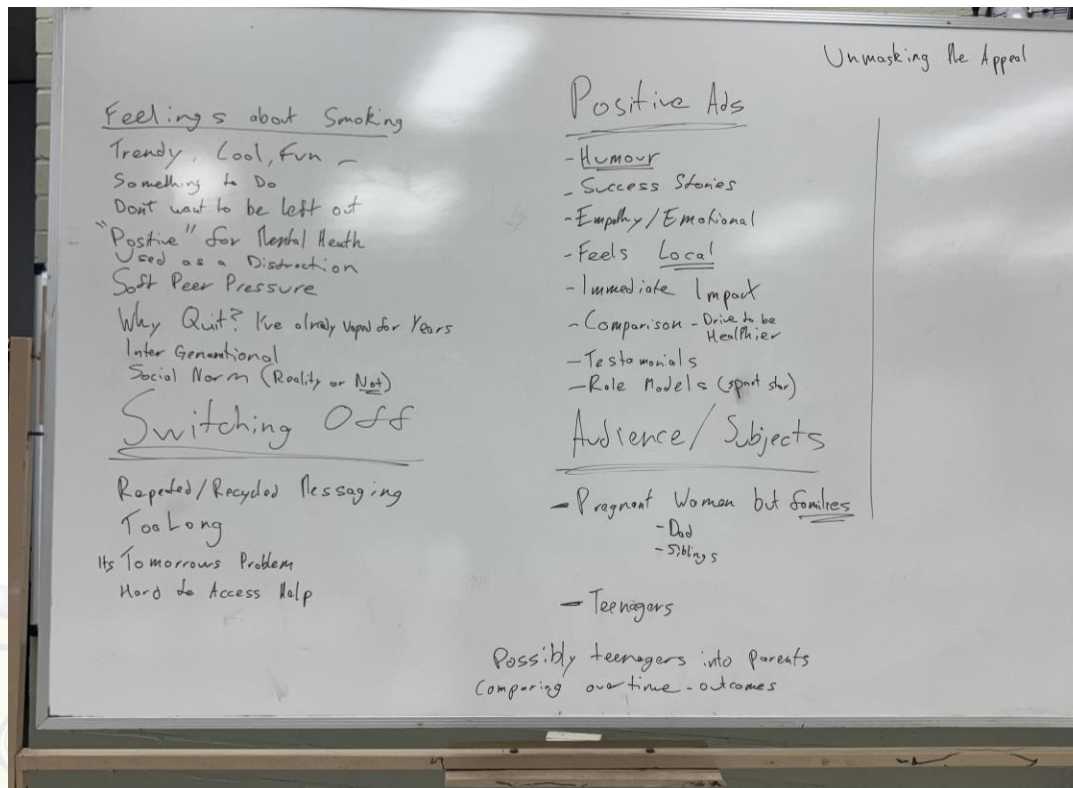 Unmasking the Appeal
Feelings about Smoking
Trendy, Cool, Fun –
Something to Do
Dont want to be left out
"Positive" for Mental Heath
Used as a Distraction
Soft Peer Pressure
Why Quit? I've already vaped for Years
Inter Generational
Social Norm (Reality or Not)
Switching Off
Repeated/Recycled Messaging
Too Long
Its Tomorrows Problem
Hard to Access Help
Positive Ads
- Humour
- Success Stories
- Empathy/Emotional
- Feels Local
- Immediate Impact
- Comparison - Drive to be
Healthier
- Testomonials
- Role Models (sport star)
Audience/Subjects
- Pregnant Women but families
- Dad
- Siblings
- Teenagers
Possibly teenagers into parents
Comparing over time - outcomes